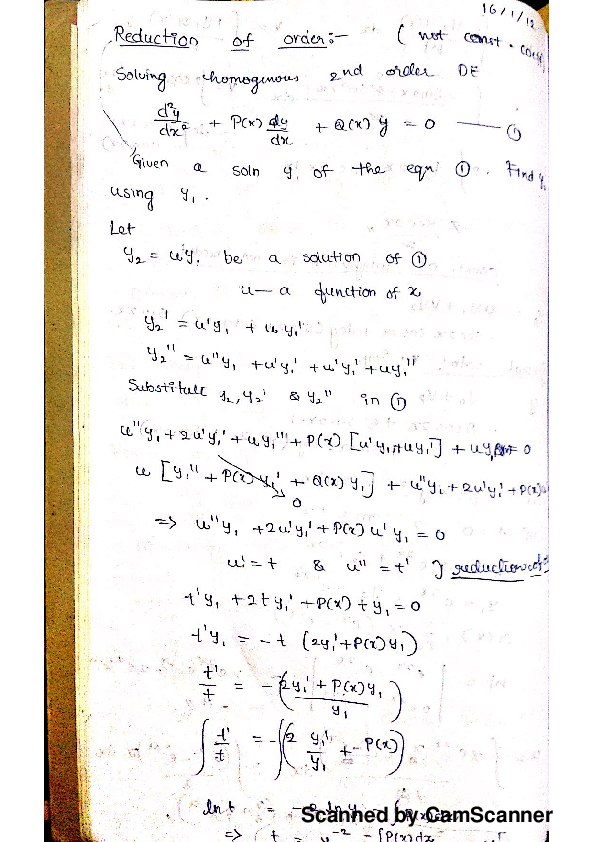 16/1/12
Reduction of order:- (not const. coeff
Solving homogenous 2nd order DE
d²y/dx² + P(x) dy/dx + Q(x) y = 0 —— ①
Given a soln y₁ of the eqn ①. Find y₂
using y₁.
Let
y₂ = uy₁ be a solution of ①
u — a function of x
y₂' = u'y₁ + uy₁'
y₂'' = u''y₁ + u'y₁' + u'y₁' + uy₁''
Substitute y₂, y₂' & y₂'' in ①
u''y₁ + 2u'y₁' + uy₁'' + P(x) [u'y₁ + uy₁'] + uy₁ = 0
u [y₁'' + P(x) y₁' + Q(x) y₁] + u''y₁ + 2u'y₁' + P(x)
0
=> u''y₁ + 2u'y₁' + P(x) u'y₁ = 0
u' = t & u'' = t' } reduction of
t'y₁ + 2ty₁' + P(x) t y₁ = 0
t'y₁ = -t (2y₁' + P(x) y₁)
t'/t = -(2y₁' + P(x) y₁ / y₁)
∫ t'/t = -∫(2 y₁'/y₁ + P(x))
ln t = -2 ln y₁ - ∫P(x)dx
=> t = y₁⁻² -∫P(x)dx
Scanned by CamScanner